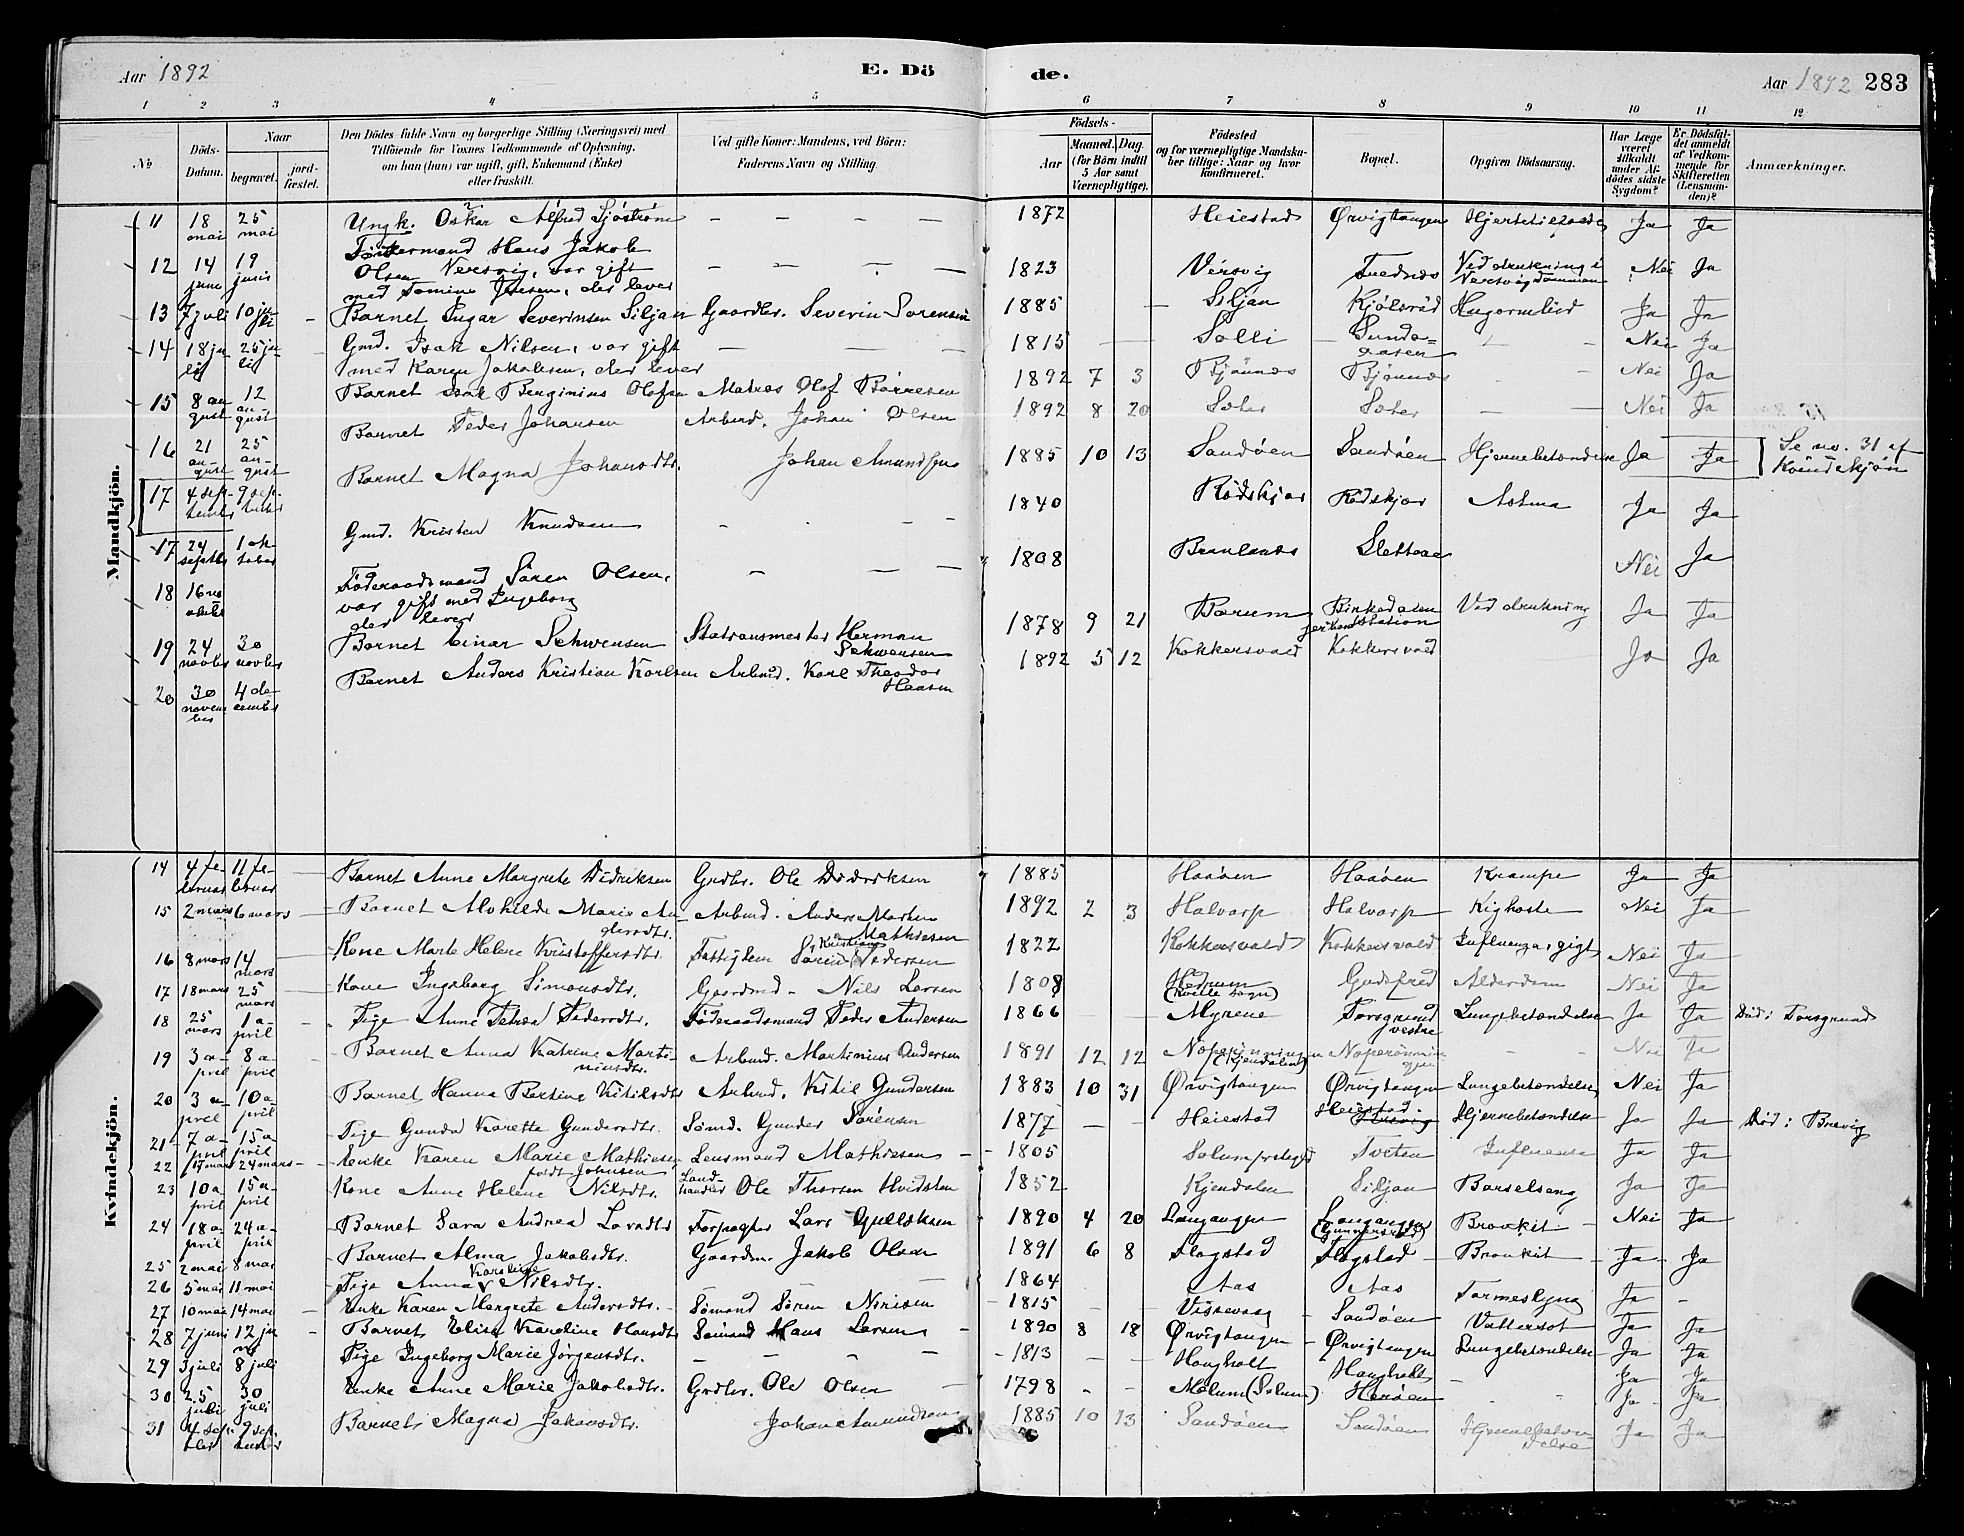 Aar 1892
E. Dö
de.
Aar 1892 283
1 2 3 4 5 6 7 8 9 10 11 12
No
Döds-Datum.
Naar
begravet.
jord-fæstet.
Den Dödes fulde Navn og borgerlige Stilling (Næringsvei) med
Tilföiende for Voxnes Vedkommende af Oplysning,
om han (hun) var ugift, gift, Enkemand (Enke)
eller fraskilt.
Ved gifte Koner: Mandens, ved Börn:
Faderens Navn og Stilling.
Födsels-
Aar
Maaned. Dag.
(for Börn indtil
5 Aar samt
Værnepligtige).
Födested
og for værnepligtige Mandska-
ber tillige: Naar og hvor
konfirmeret.
Bopæl.
Opgiven Dödsaarsag.
Har Læge
været
tilkaldt
under Af-
dödes sidste
Sygdom?
Er Dödsfal-
det anmeldt
af Vedkom-
mende for
Skifteretten
(Lensman-
den)?
Anmærkninger.
Mandkjön.
11 18 mai 25 mai Ungk. Oskar Alfred Sjöström — — — — 1872 Heiestad Ørvigtangen Ja Ja
12 14 juni 19 juni Hans Jakob
Olsen Versvig, var gift — — — — 1823 Versvig Nei Ja
med der lever
Ved drukning i
13 7 juli 10 juli — Barnet Ingar Severinsen Siljan Gaardbr. Severin Sorensen 1885 — Siljan Kjölsröd Ja Ja
14 18 juli 25 juli Gmd. Isak Nilsen, var gift — — — 1815 — — Solli Nei Ja
med Karen Jakobsen, der lever
15 8 august 12 august Barnet Isak Berginius Olofsen Matros Olof Börresen 1892 7 3 Bjönnes Bjönnes — — Nei Ja
16 21 august 25 august Barnet Peder Johansen Arbmd. Johan Olsen 1892 8 20 Sæter Sæter — — Nei Ja
17 4 september 9 september Barnet Magna Johansdtr. Johan Amundsen 1885 10 13 Sandöen Sandöen Hjernebetændelse Ja Ja Se no. 31 af
Kvindekjön
17 24 septbr 1 oktober Gmd. Kristen Knudsen — — — 1840 Rödskjær Rödskjær Astma Ja Ja
18 16 Föderaadsmand Sören Olsen, — — — 1808 Slettene Nei Ja
var gift med Ingeborg
der lever
19 24 novbr 30 novbr Barnet Einar Schwensen Stationsmester Herman
Schwensen 1878 9 21 Bærum Ved drukning Ja Ja
20 30 november 4 december Barnet Anders Kristian Karlsen Arbmd. Karl Theodor
Hansen 1892 5 12 Kokkersvold Kokkersvold — Ja Ja
Kvindekjön.
14 4 februar 11 februar — Barnet Anne Margrete Didriksen Grdbr. Ole Dideriksen 1885 Haaöen Haaöen Krampe Ja Ja
15 2 mars 6 mars — Barnet Alvhilde Marie An-
dersdtr. Arbmd. Anders Martin
Mathiesen 1892 2 3 Halvarp Halvarp Kighoste Nei Ja
16 8 mars 14 mars Kone Marte Helene Kristoffersdtr. Fattiglem Sören Kristian Pedersen 1822 Kokkersvold Kokkersvold Influenza, gigt Nei Ja
17 18 mars 25 mars — Kone Ingeborg Simonsdtr. Gaardmd. Nils Larsen 1808 Hedrum
(Kvelle sogn) Alderdom Nei Ja
18 25 mars 1 april — Pige Anne Petrea Pedersdtr. Föderaadsmand Peder Andersen 1866 Myrene Porsgrund
vestre Lungebetændelse Ja Ja Död i Porsgrund
19 3 april 8 april Barnet Anna Katrine Marti-
niusdtr. Arbmd. Martinius Andersen 1891 12 12
(Kjendalen) — — Nei Ja
20 3 april 10 april Barnet Hanna Bertine Kitilsdtr Arbmd. Kitil Gundersen 1883 10 31 Ørvigtangen Ørvigtangen Lungebetændelse Nei Ja
21 7 april 15 april Pige Gunda Karette Gundersdtr. Sömd. Gunder Sörensen 1877 — — Heiestad Heiestad. Hjernebetændelse Ja Ja Död i Brevig
22 17 mars 24 mars — Enke Karen Marie Mathiesen
födt Johnsen Lensmand Mathiesen 1805 Tveten Influenza Ja Ja
23 10 april 15 april Kone Anne Helene Nilsdtr. Land-
handler Ole Thorsen Hvidsten 1852 Kjendalen Siljan Barselseng Ja Ja
24 18 april 24 april Barnet Sara Andrea Larsdtr Forpagter Lars Gulliksen 1890 4 20 Langangen Langangen Bronkit Nei Ja
25 2 mai 8 mai Barnet Alma Jakobsdtr. Gaardm. Jakob Olsen 1891 6 8 Flogstad Flogstad Bronkit Ja Ja
26 5 mai 11 mai Pige Anna Karoline Nilsdtr. — — — 1864 Aas Aas Tarmeslyng Ja —
27 10 mai 14 mai — Enke Karen Margrete Andersdtr. Sömand Sören Nirisen 1815 — — Vissevaag Sandöen Vattersot Ja Ja
28 7 juni 12 juni — Barnet Elise Karoline Hansdtr Sömand Hans Larsen — 1890 8 18 Ørvigtangen Ørvigtangen Lungebetændelse Ja Ja
29 3 juli 8 juli Pige Ingeborg Marie Jörgensdtr. — — — — 1813 — — Haugholt Haugholt — Ja Ja
30 25 juli 30 juli Enke Anne Marie Jakobsdtr. Grdbr. Ole Olsen — 1798 — — Melum (Solum) Heröen Ja Ja
31 4 septbr 9 september Barnet Magna Johansdtr. Johan Amundsen 1885 10 13 Sandöen Sandöen Hjernebetæn-
delse Ja Ja